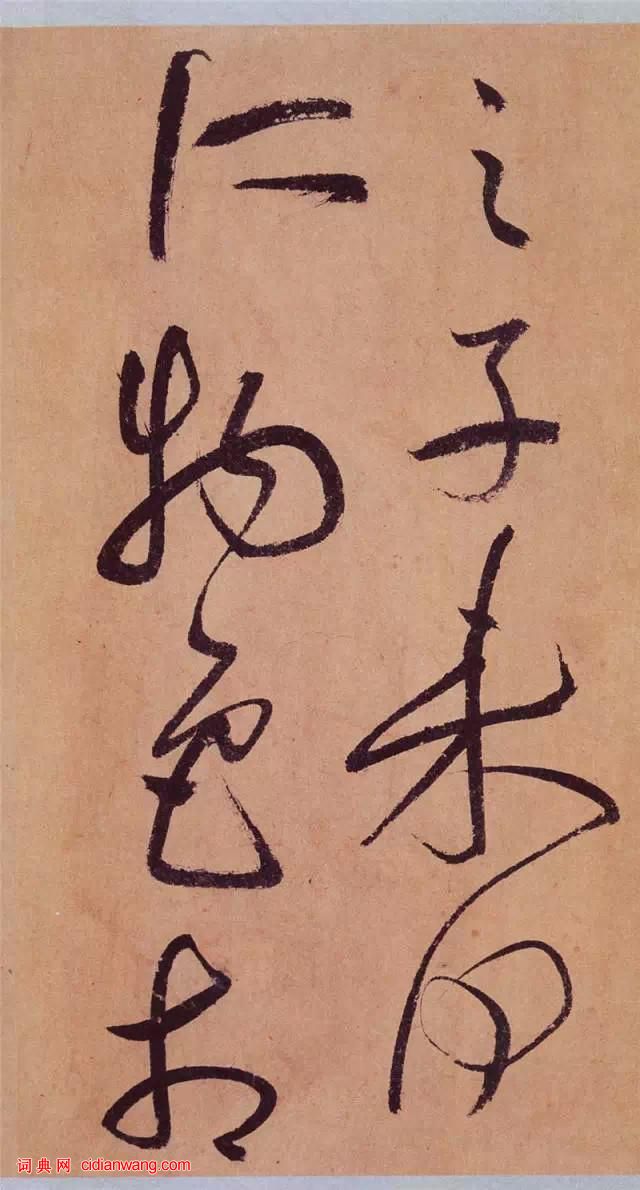 之子未同
仁物色相
词典网 cidianwang.com